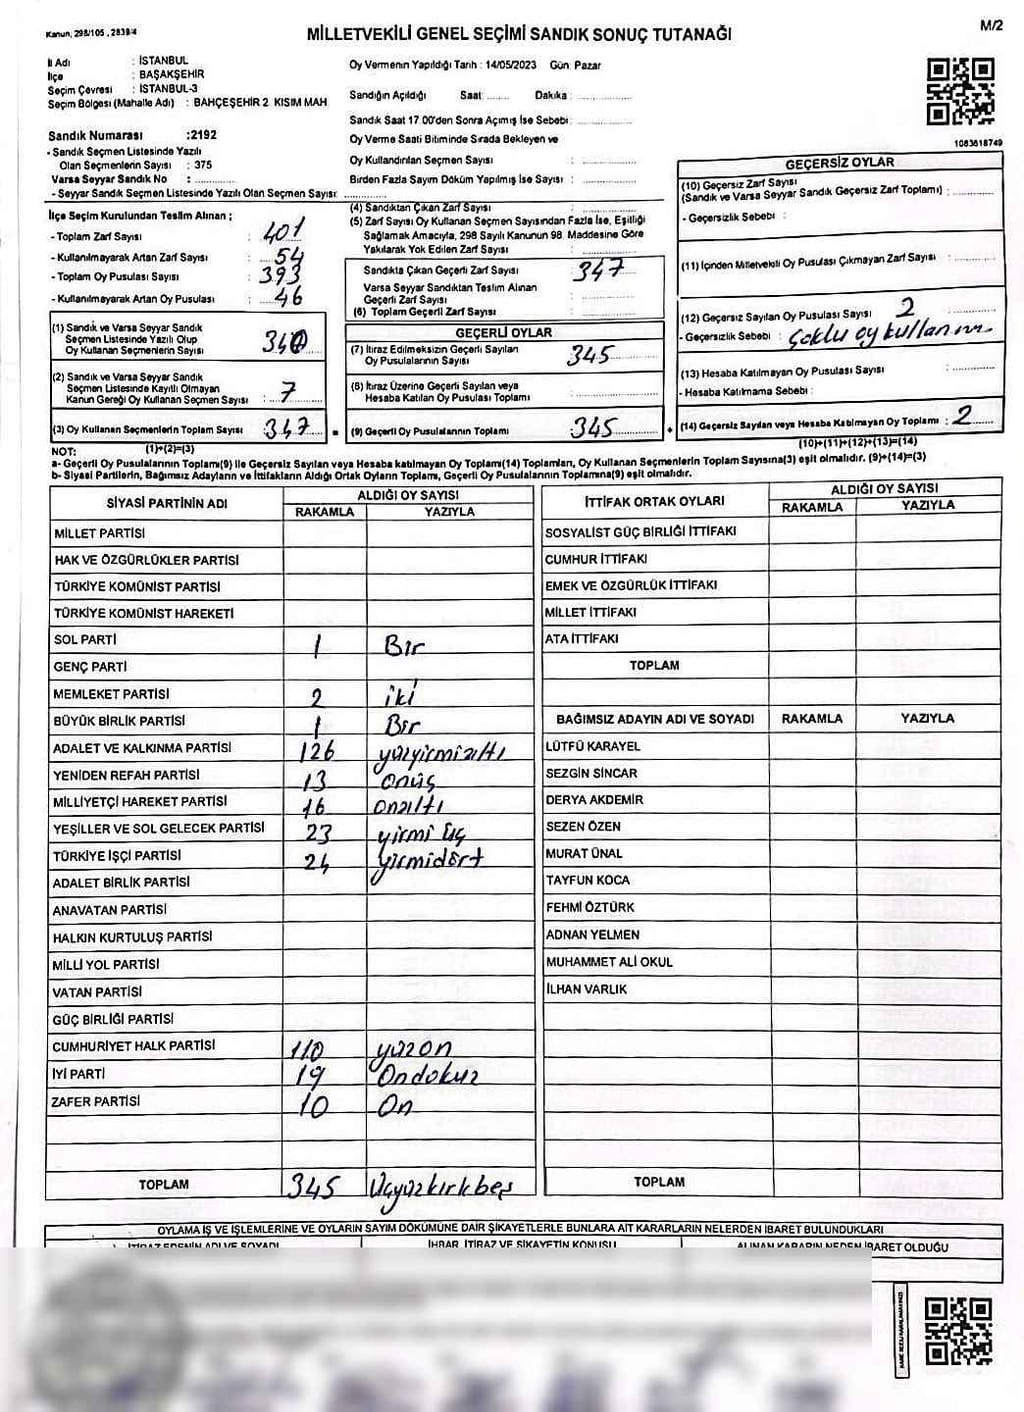 Kanun, 298/105 , 2839/4
MİLLETVEKİLİ GENEL SEÇİMİ SANDIK SONUÇ TUTANAĞI
M/2
İl Adı : İSTANBUL
İlçe : BAŞAKŞEHİR
Seçim Çevresi : İSTANBUL-3
Seçim Bölgesi (Mahalle Adı) : BAHÇEŞEHİR 2 KISIM MAH
Sandık Numarası :2192
- Sandık Seçmen Listesinde Yazılı
Olan Seçmenlerin Sayısı : 375
Varsa Seyyar Sandık No :
- Seyyar Sandık Seçmen Listesinde Yazılı Olan Seçmen Sayısı:
Oy Vermenin Yapıldığı Tarih : 14/05/2023 Gün: Pazar
Sandığın Açıldığı Saat: Dakika :
Sandık Saat 17.00'den Sonra Açımış İse Sebebi:
Oy Verme Saati Bitiminde Sırada Bekleyen ve
Oy Kullandırılan Seçmen Sayısı :
Birden Fazla Sayım Döküm Yapılmış İse Sayısı :
1083618749
İlçe Seçim Kurulundan Teslim Alınan ;
- Toplam Zarf Sayısı : 401
- Kullanılmayarak Artan Zarf Sayısı : 54
- Toplam Oy Pusulası Sayısı : 393
- Kullanılmayarak Artan Oy Pusulası : 46
(1) Sandık ve Varsa Seyyar Sandık
Seçmen Listesinde Yazılı Olup
Oy Kullanan Seçmenlerin Sayısı : 340
(2) Sandık ve Varsa Seyyar Sandık
Seçmen Listesinde Kayıtlı Olmayan
Kanun Gereği Oy Kullanan Seçmen Sayısı : 7
(3) Oy Kullanan Seçmenlerin Toplam Sayısı : 347 =
(4) Sandıktan Çıkan Zarf Sayısı :
(5) Zarf Sayısı Oy Kullanan Seçmen Sayısından Fazla İse, Eşitliği
Sağlamak Amacıyla, 298 Sayılı Kanunun 98. Maddesine Göre
Yakılarak Yok Edilen Zarf Sayısı :
Sandıkta Çıkan Geçerli Zarf Sayısı : 347
Varsa Seyyar Sandıktan Teslim Alınan
Geçerli Zarf Sayısı :
(6) Toplam Geçerli Zarf Sayısı :
GEÇERLİ OYLAR
(7) İtiraz Edilmeksizin Geçerli Sayılan
Oy Pusulalarının Sayısı : 345
(8) İtiraz Üzerine Geçerli Sayılan veya
Hesaba Katılan Oy Pusulası Toplamı :
(9) Geçerli Oy Pusulalarının Toplamı : 345 +
GEÇERSİZ OYLAR
(10) Geçersiz Zarf Sayısı
(Sandık ve Varsa Seyyar Sandık Geçersiz Zarf Toplamı) :
- Geçersizlik Sebebi :
(11) İçinden Milletvekili Oy Pusulası Çıkmayan Zarf Sayısı :
(12) Geçersiz Sayılan Oy Pusulası Sayısı : 2
- Geçersizlik Sebebi : Çoklu oy kullanımı
(13) Hesaba Katılmayan Oy Pusulası Sayısı :
- Hesaba Katılmama Sebebi :
(14) Geçersiz Sayılan veya Hesaba Katılmayan Oy Toplamı : 2
NOT: (1)+(2)=(3) (10)+(11)+(12)+(13)=(14)
a- Geçerli Oy Pusulalarının Toplamı(9) ile Geçersiz Sayılan veya Hesaba katılmayan Oy Toplamı(14) Toplamları, Oy Kullanan Seçmenlerin Toplam Sayısına(3) eşit olmalıdır. (9)+(14)=(3)
b- Siyasi Partilerin, Bağımsız Adayların ve İttifakların Aldığı Ortak Oyların Toplamı, Geçerli Oy Pusulalarının Toplamına(9) eşit olmalıdır.
SİYASİ PARTİNİN ADI ALDIĞI OY SAYISI
RAKAMLA YAZIYLA
MİLLET PARTİSİ
HAK VE ÖZGÜRLÜKLER PARTİSİ
TÜRKİYE KOMÜNİST PARTİSİ
TÜRKİYE KOMÜNİST HAREKETİ
SOL PARTİ 1 Bir
GENÇ PARTİ
MEMLEKET PARTİSİ 2 iki
BÜYÜK BİRLİK PARTİSİ 1 Bir
ADALET VE KALKINMA PARTİSİ 126 yüzyirmialtı
YENİDEN REFAH PARTİSİ 13 onüç
MİLLİYETÇİ HAREKET PARTİSİ 16 onaltı
YEŞİLLER VE SOL GELECEK PARTİSİ 23 yirmi üç
TÜRKİYE İŞÇİ PARTİSİ 24 yirmidört
ADALET BİRLİK PARTİSİ
ANAVATAN PARTİSİ
HALKIN KURTULUŞ PARTİSİ
MİLLİ YOL PARTİSİ
VATAN PARTİSİ
GÜÇ BİRLİĞİ PARTİSİ
CUMHURİYET HALK PARTİSİ 110 yüzon
İYİ PARTİ 19 Ondokuz
ZAFER PARTİSİ 10 On
TOPLAM 345 Üçyüzkırkbeş
İTTİFAK ORTAK OYLARI ALDIĞI OY SAYISI
RAKAMLA YAZIYLA
SOSYALİST GÜÇ BİRLİĞİ İTTİFAKI
CUMHUR İTTİFAKI
EMEK VE ÖZGÜRLÜK İTTİFAKI
MİLLET İTTİFAKI
ATA İTTİFAKI
TOPLAM
BAĞIMSIZ ADAYIN ADI VE SOYADI RAKAMLA YAZIYLA
LÜTFÜ KARAYEL
SEZGİN SİNCAR
DERYA AKDEMİR
SEZEN ÖZEN
MURAT ÜNAL
TAYFUN KOCA
FEHMİ ÖZTÜRK
ADNAN YELMEN
MUHAMMET ALİ OKUL
İLHAN VARLIK
TOPLAM
OYLAMA İŞ VE İŞLEMLERİNE VE OYLARIN SAYIM DÖKÜMÜNE DAİR ŞİKAYETLERLE BUNLARA AİT KARARLARIN NELERDEN İBARET BULUNDUKLARI
İTİRAZ EDENİN ADI VE SOYADI İHBAR, İTİRAZ VE ŞİKAYETİN KONUSU ALINAN KARARIN NEDEN İBARET OLDUĞU